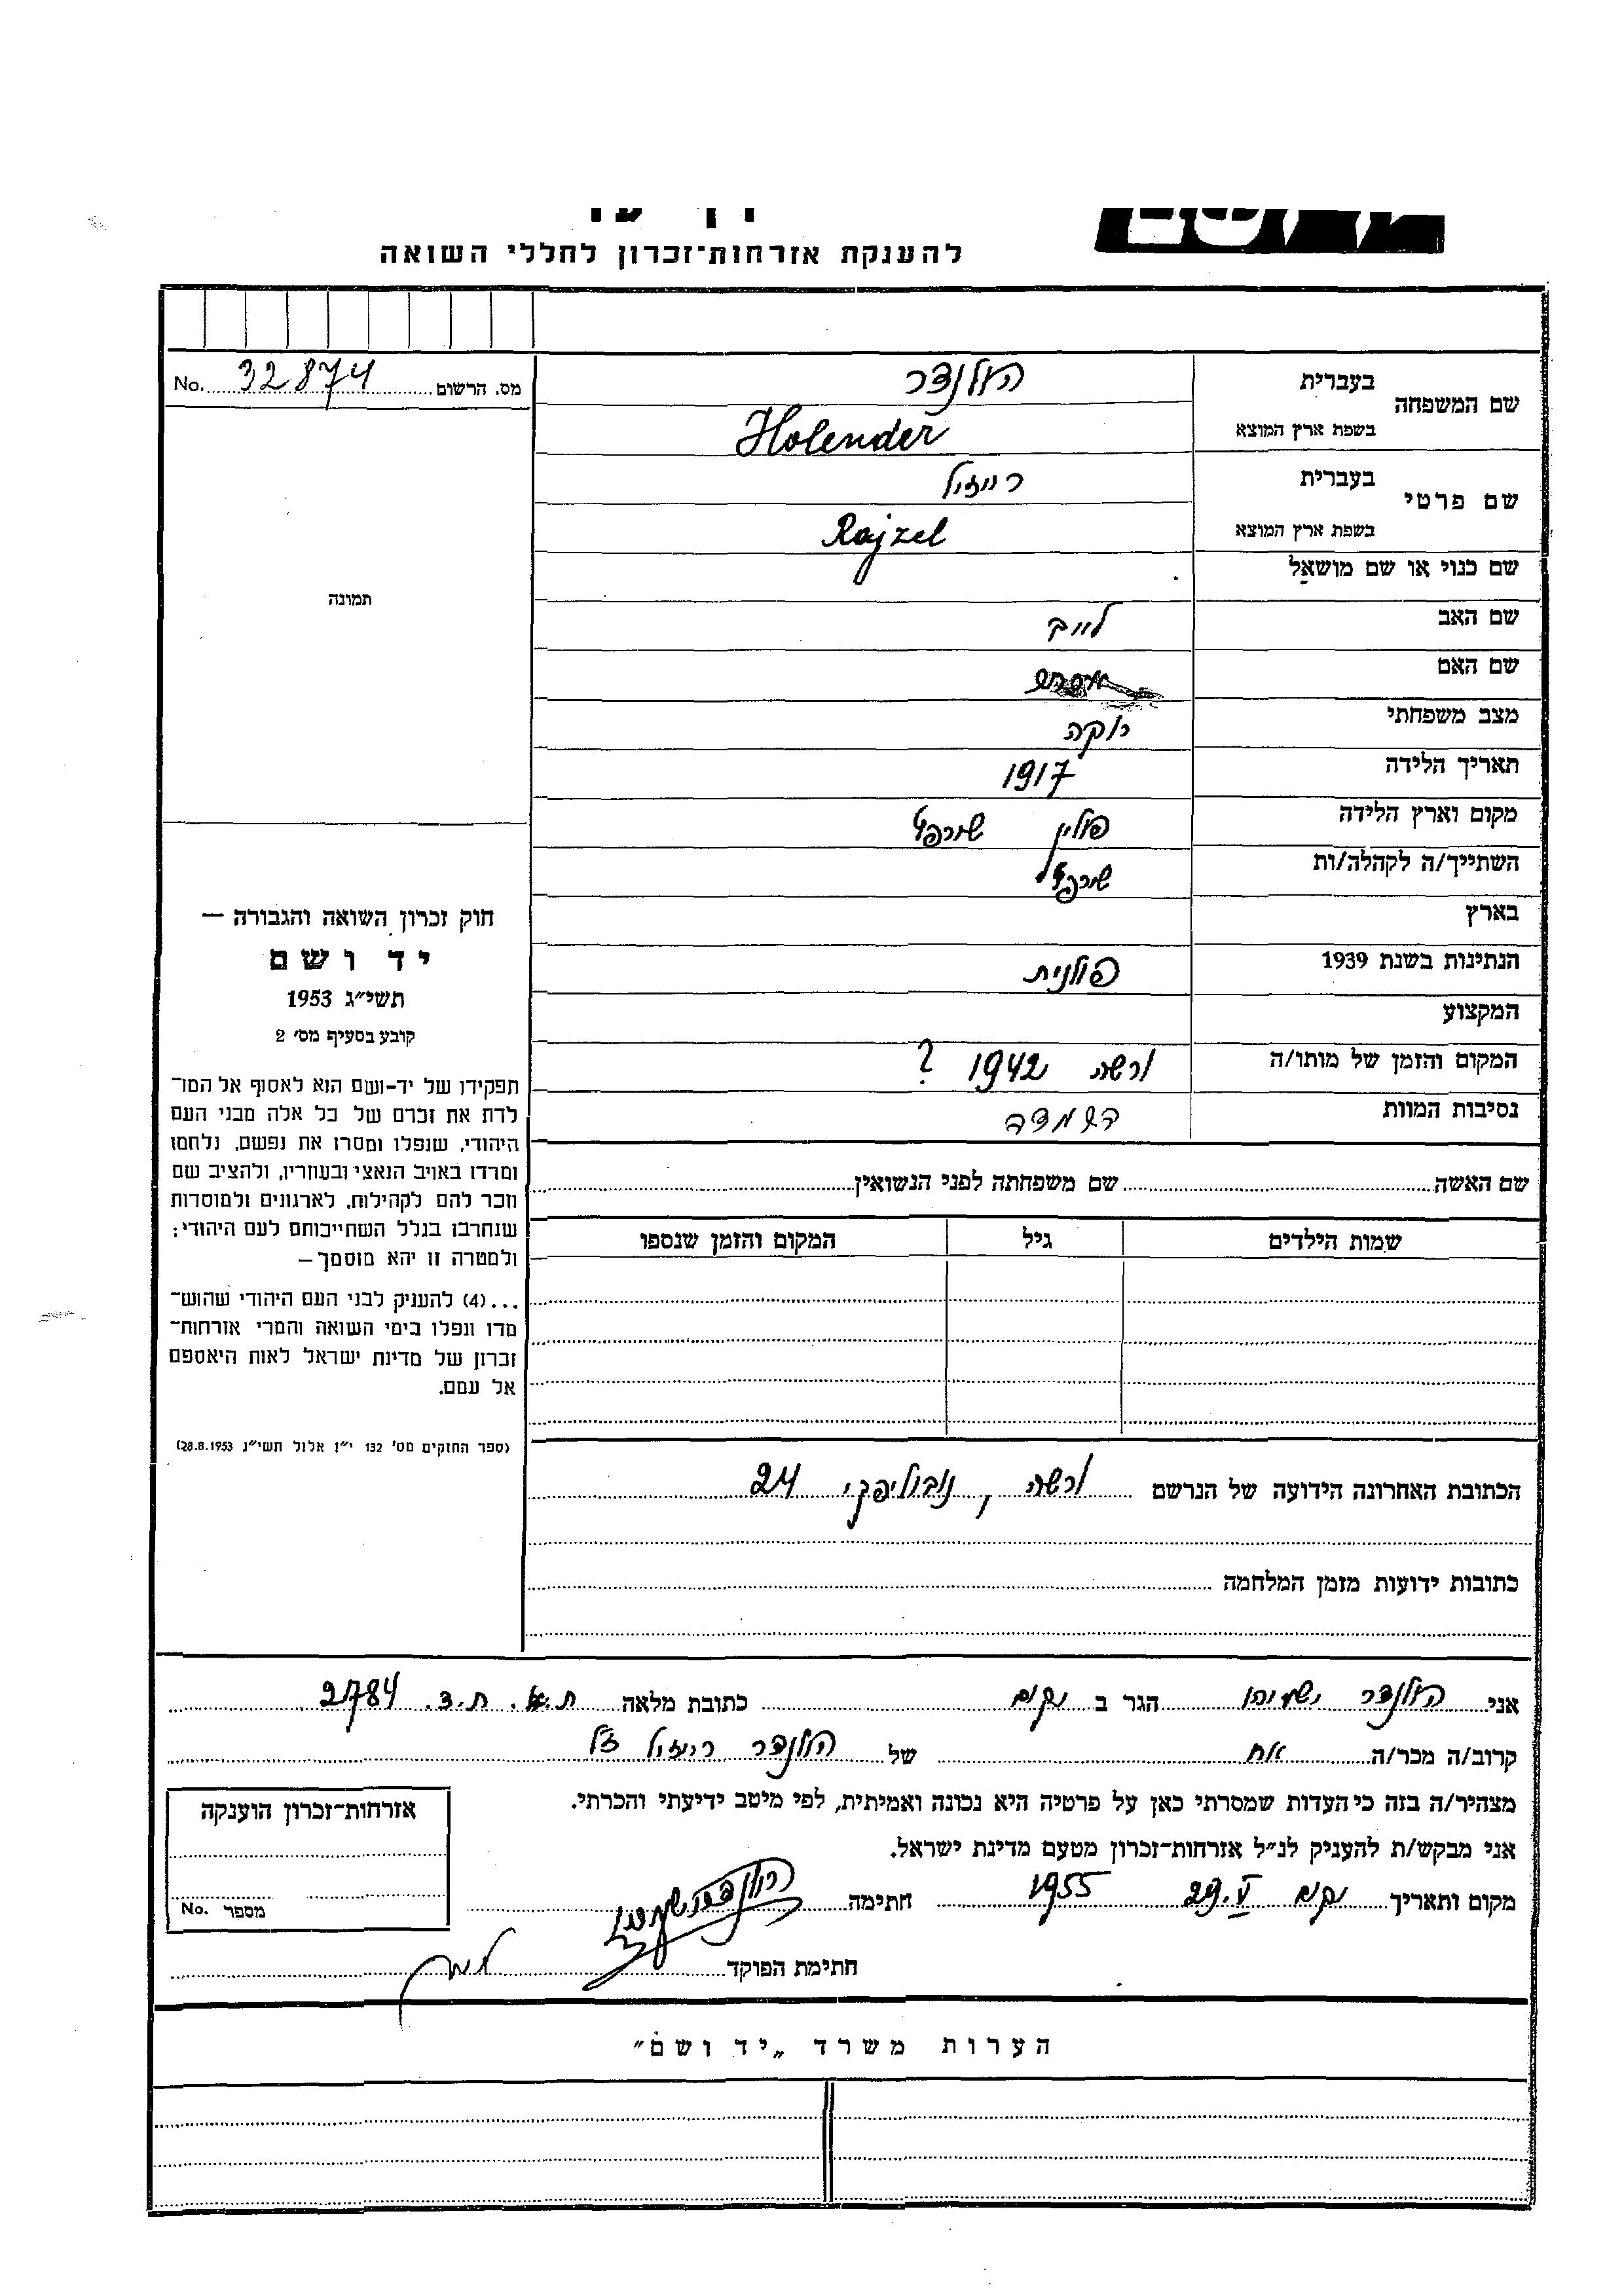 להענקת אזרחות־זכרון לחללי השואה
מס. הרשום 32874 No.
שם המשפחה
בעברית הולנדר
בשפת ארץ המוצא Holender
שם פרטי
בעברית רייזל
בשפת ארץ המוצא Rajzel
שם כנוי או שם מושאל
שם האב לייב
שם האם
מצב משפחתי רוקה
תאריך הלידה 1917
מקום וארץ הלידה פולין
השתייך/ה לקהלה/ות
בארץ
הנתינות בשנת 1939 פולנית
המקצוע
המקום והזמן של מותו/ה ורשה 1942 ?
נסיבות המוות השמדה
תמונה
חוק זכרון השואה והגבורה —
יד ושם
תשי״ג 1953
קובע בסעיף מס׳ 2
תפקידו של יד-ושם הוא לאסוף אל המו־
לדת את זכרם של כל אלה מבני העם
היהודי, שנפלו ומסרו את נפשם, נלחמו
ומרדו באויב הנאצי ובעוזריו, ולהציב שם
וזכר להם לקהילות, לארגונים ולמוסדות
שנחרבו בגלל השתייכותם לעם היהודי;
ולמטרה זו יהא מוסמך—
...(4) להעניק לבני העם היהודי שהוש־
מדו ונפלו בימי השואה והמרי אזרחות־
זכרון של מדינת ישראל לאות היאספם
אל עמם.
(ספר החוקים מס׳ 132 י״ז אלול תשי״ג 28.8.1953)
שם האשה שם משפחתה לפני הנשואין
שמות הילדים גיל המקום והזמן שנספו
הכתובת האחרונה הידועה של הנרשם ורשה, נובוליפקי 24
כתובות ידועות מזמן המלחמה
אני הולנדר ישעיהו הגר ב יקום כתובת מלאה ת.א. ת.ד. 2784
קרוב/ה מכר/ה אח של הולנדר רייזל ז״ל
מצהיר/ה בזה כי העדות שמסרתי כאן על פרטיה היא נכונה ואמיתית, לפי מיטב ידיעתי והכרתי.
אני מבקש/ת להעניק לנ״ל אזרחות-זכרון מטעם מדינת ישראל.
מקום ותאריך יקום 29.V 1955 חתימה
חתימת הפוקד
אזרחות-זכרון הוענקה
מספר No.
הערות משרד „יד ושם״